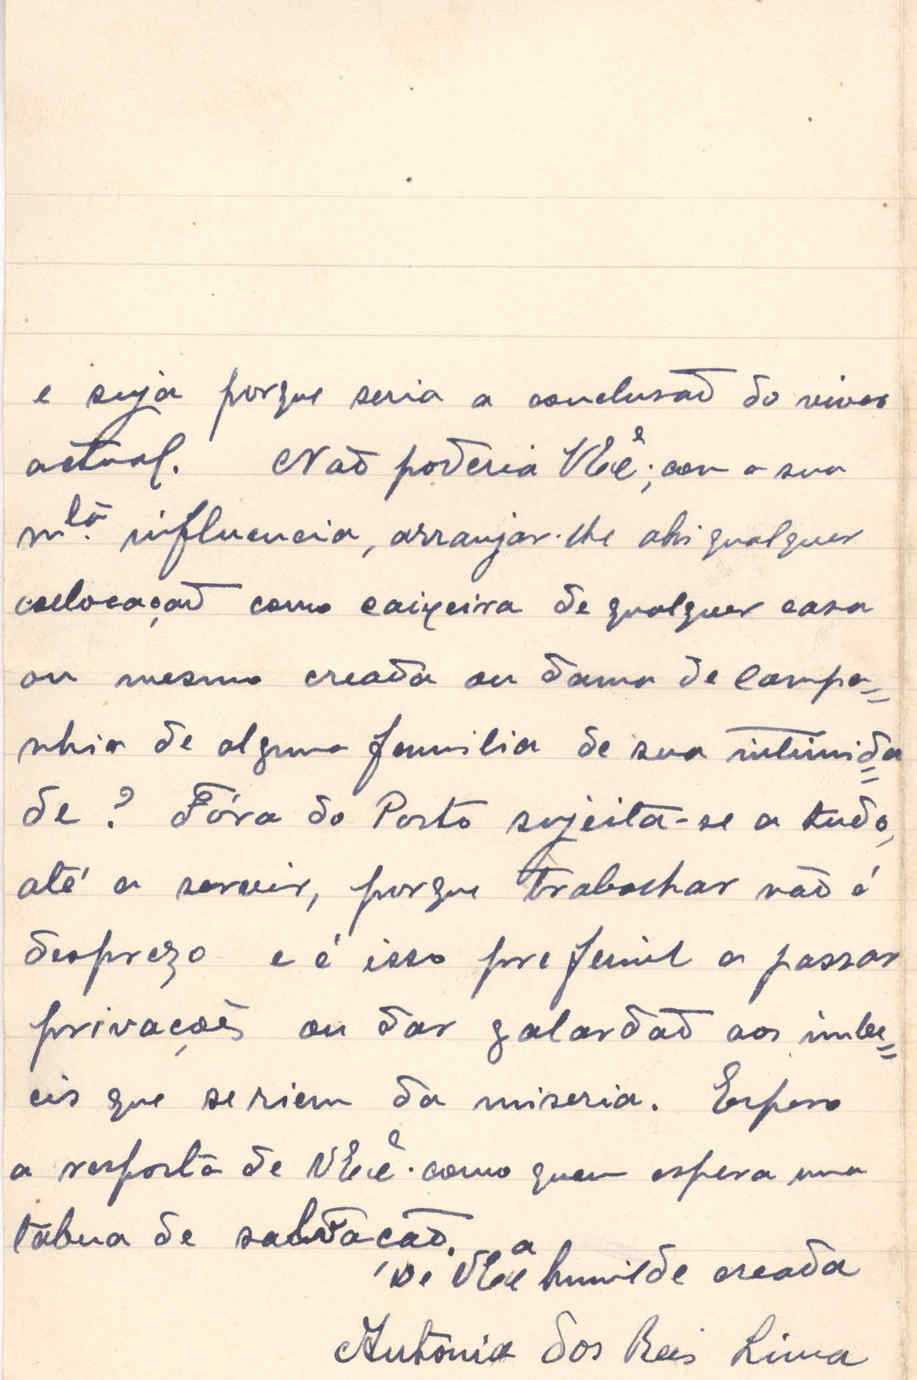 e suja porque seria a conclusão do viver
actual. Não poderia V Exª; com a sua
mta. influencia, arranjar-lhe ahi qualquer
collocação como caixeira de qualquer casa
ou mesmo creada ou dama de compa=
nhia de alguma familia de sua intimida=
de? Fóra do Porto sujeita-se a tudo,
até a servir, porque trabalhar não é
desprezo e é isso prefer a passar
privações ou dar galardão aos imbe=
cis que se riem da miseria. Espero
a resposta de V Exª. como quem espera uma
tábua de salvação.
De V Exª humilde creada
Antónia dos Reis Lima